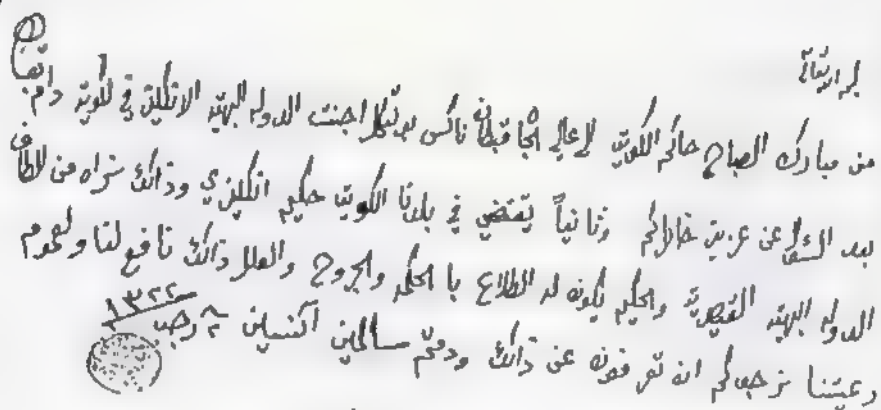 من مبارك الصباح حاكم الكويت لدعالي الجا قبطان ناكس بولتيكل اجنت الدوله البهيه الانكليز في الكويت دام
بعد السؤال عن عزيز خاطركم وثانياً يقتضي في بلدنا الكويت حكيم انكليزي وذالك نراه من الطاف
الدوله البهيه القيصريه والحكيم يكونه له الطلاع با الحكمه والجروح والعلل ذالك نافع لنا ولعموم
رعيتنا نرجوكم انه تعرفونه عن ذالك ودمتم سالمين رجب
١٣٢٢